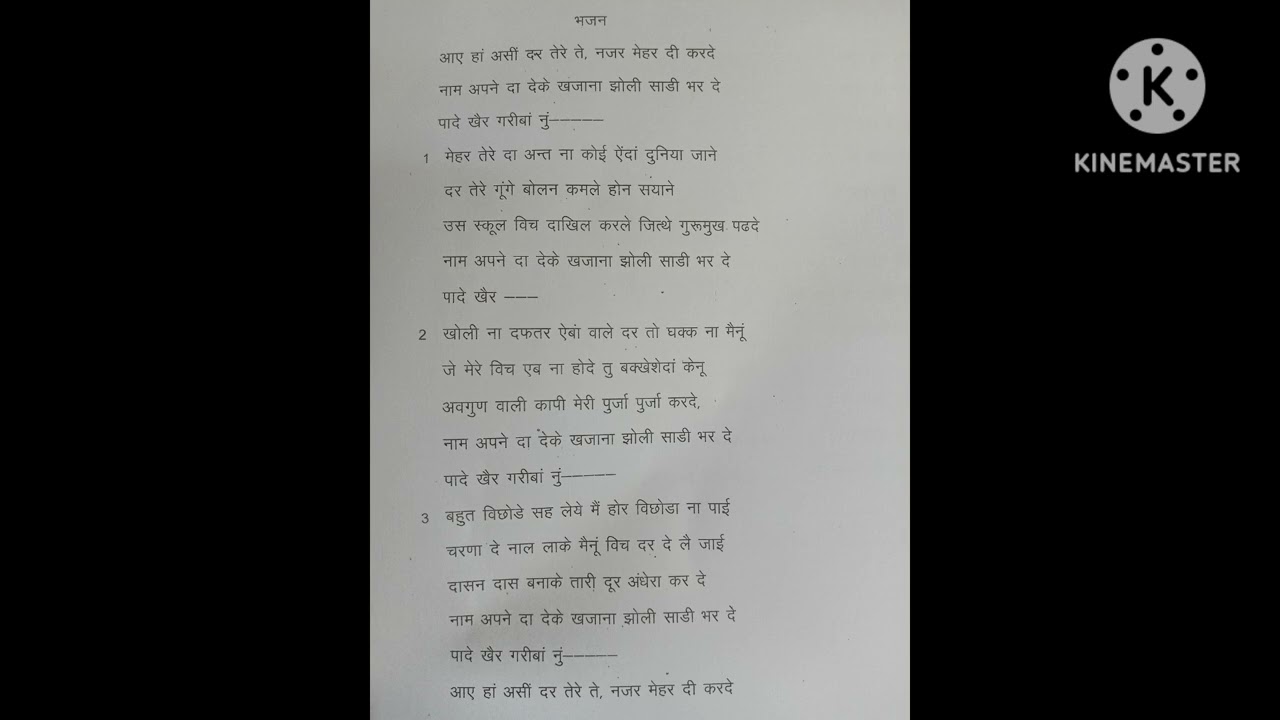 भजन
आए हां असीं दर तेरे ते, नजर मेहर दी करदे
नाम अपने दा देके खजाना झोली साडी भर दे
पादे खैर गरीबां नुं-----
1 मेहर तेरे दा अन्त ना कोई ऐंदां दुनिया जाने
दर तेरे गूंगे बोलन कमले होन सयाने
उस स्कूल विच दाखिल करले जित्थे गुरूमुख पढदे
नाम अपने दा देके खजाना झोली साडी भर दे
पादे खैर ---
2 खोली ना दफतर ऐबां वाले दर तो घक्क ना मैनूं
जे मेरे विच एब ना होदे तु बक्खेशेदां केनू
अवगुण वाली कापी मेरी पुर्जा पुर्जा करदे,
नाम अपने दा देके खजाना झोली साडी भर दे
पादे खैर गरीबां नुं-----
3 बहुत विछोडे सह लेये मैं होर विछोडा ना पाई
चरणा दे नाल लाके मैनूं विच दर दे लै जाई
दासन दास बनाके तारी दूर अंधेरा कर दे
नाम अपने दा देके खजाना झोली साडी भर दे
पादे खैर गरीबां नुं-----
आए हां असीं दर तेरे ते, नजर मेहर दी करदे
K
KINEMASTER